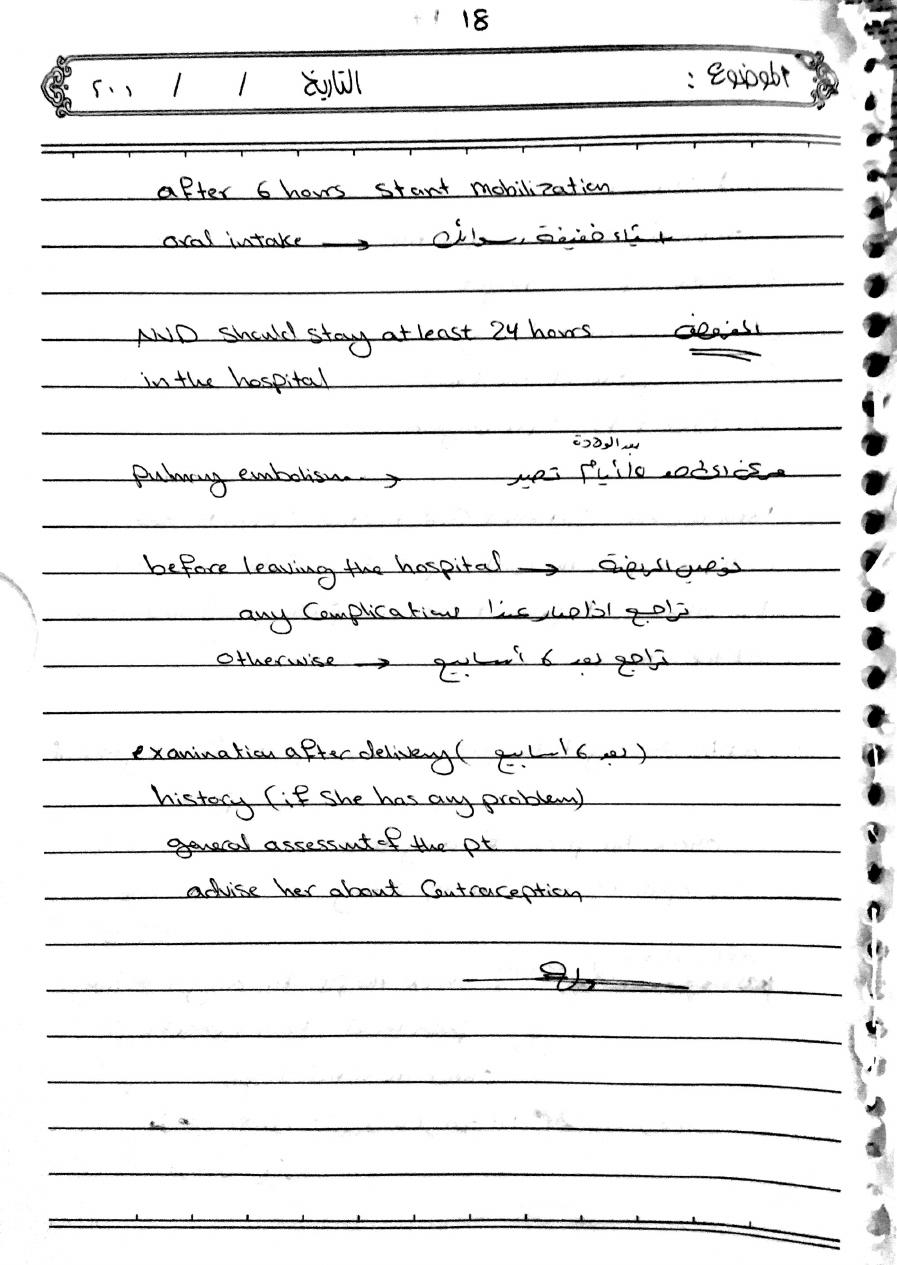 18
الموضوع :
التاريخ / / ٢٠٠١
after 6 hours start mobilization
oral intake → اشياء خفيفة، سوائل
AND should stay at least 24 hours المفروض
in the hospital
بعد الولادة
pulmary embolism → ممكن ايام تصير
before leaving the hospital → نوصي المريضة
any complication تراجع اذا صار عندا
otherwise → تراجع بعد 6 أسابيع
examination after delivery ( بعد 6 أسابيع )
history (if she has any problem)
general assessmt of the pt
advise her about Contraception